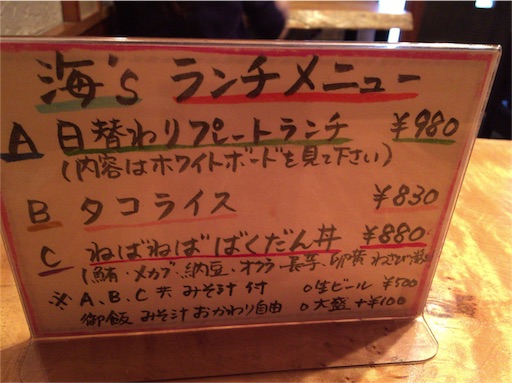 海's ランチメニュー
A 日替わりプレートランチ ¥980
(内容はホワイトボードを見て下さい)
B タコライス ¥830
C ねばねばばくだん丼 ¥880
(鮪・メカブ・納豆・オクラ・長芋・卵黄
※ A、B、C共 みそ汁付 o生ビール ¥500
御飯 みそ汁 おかわり自由 o大盛 +¥100